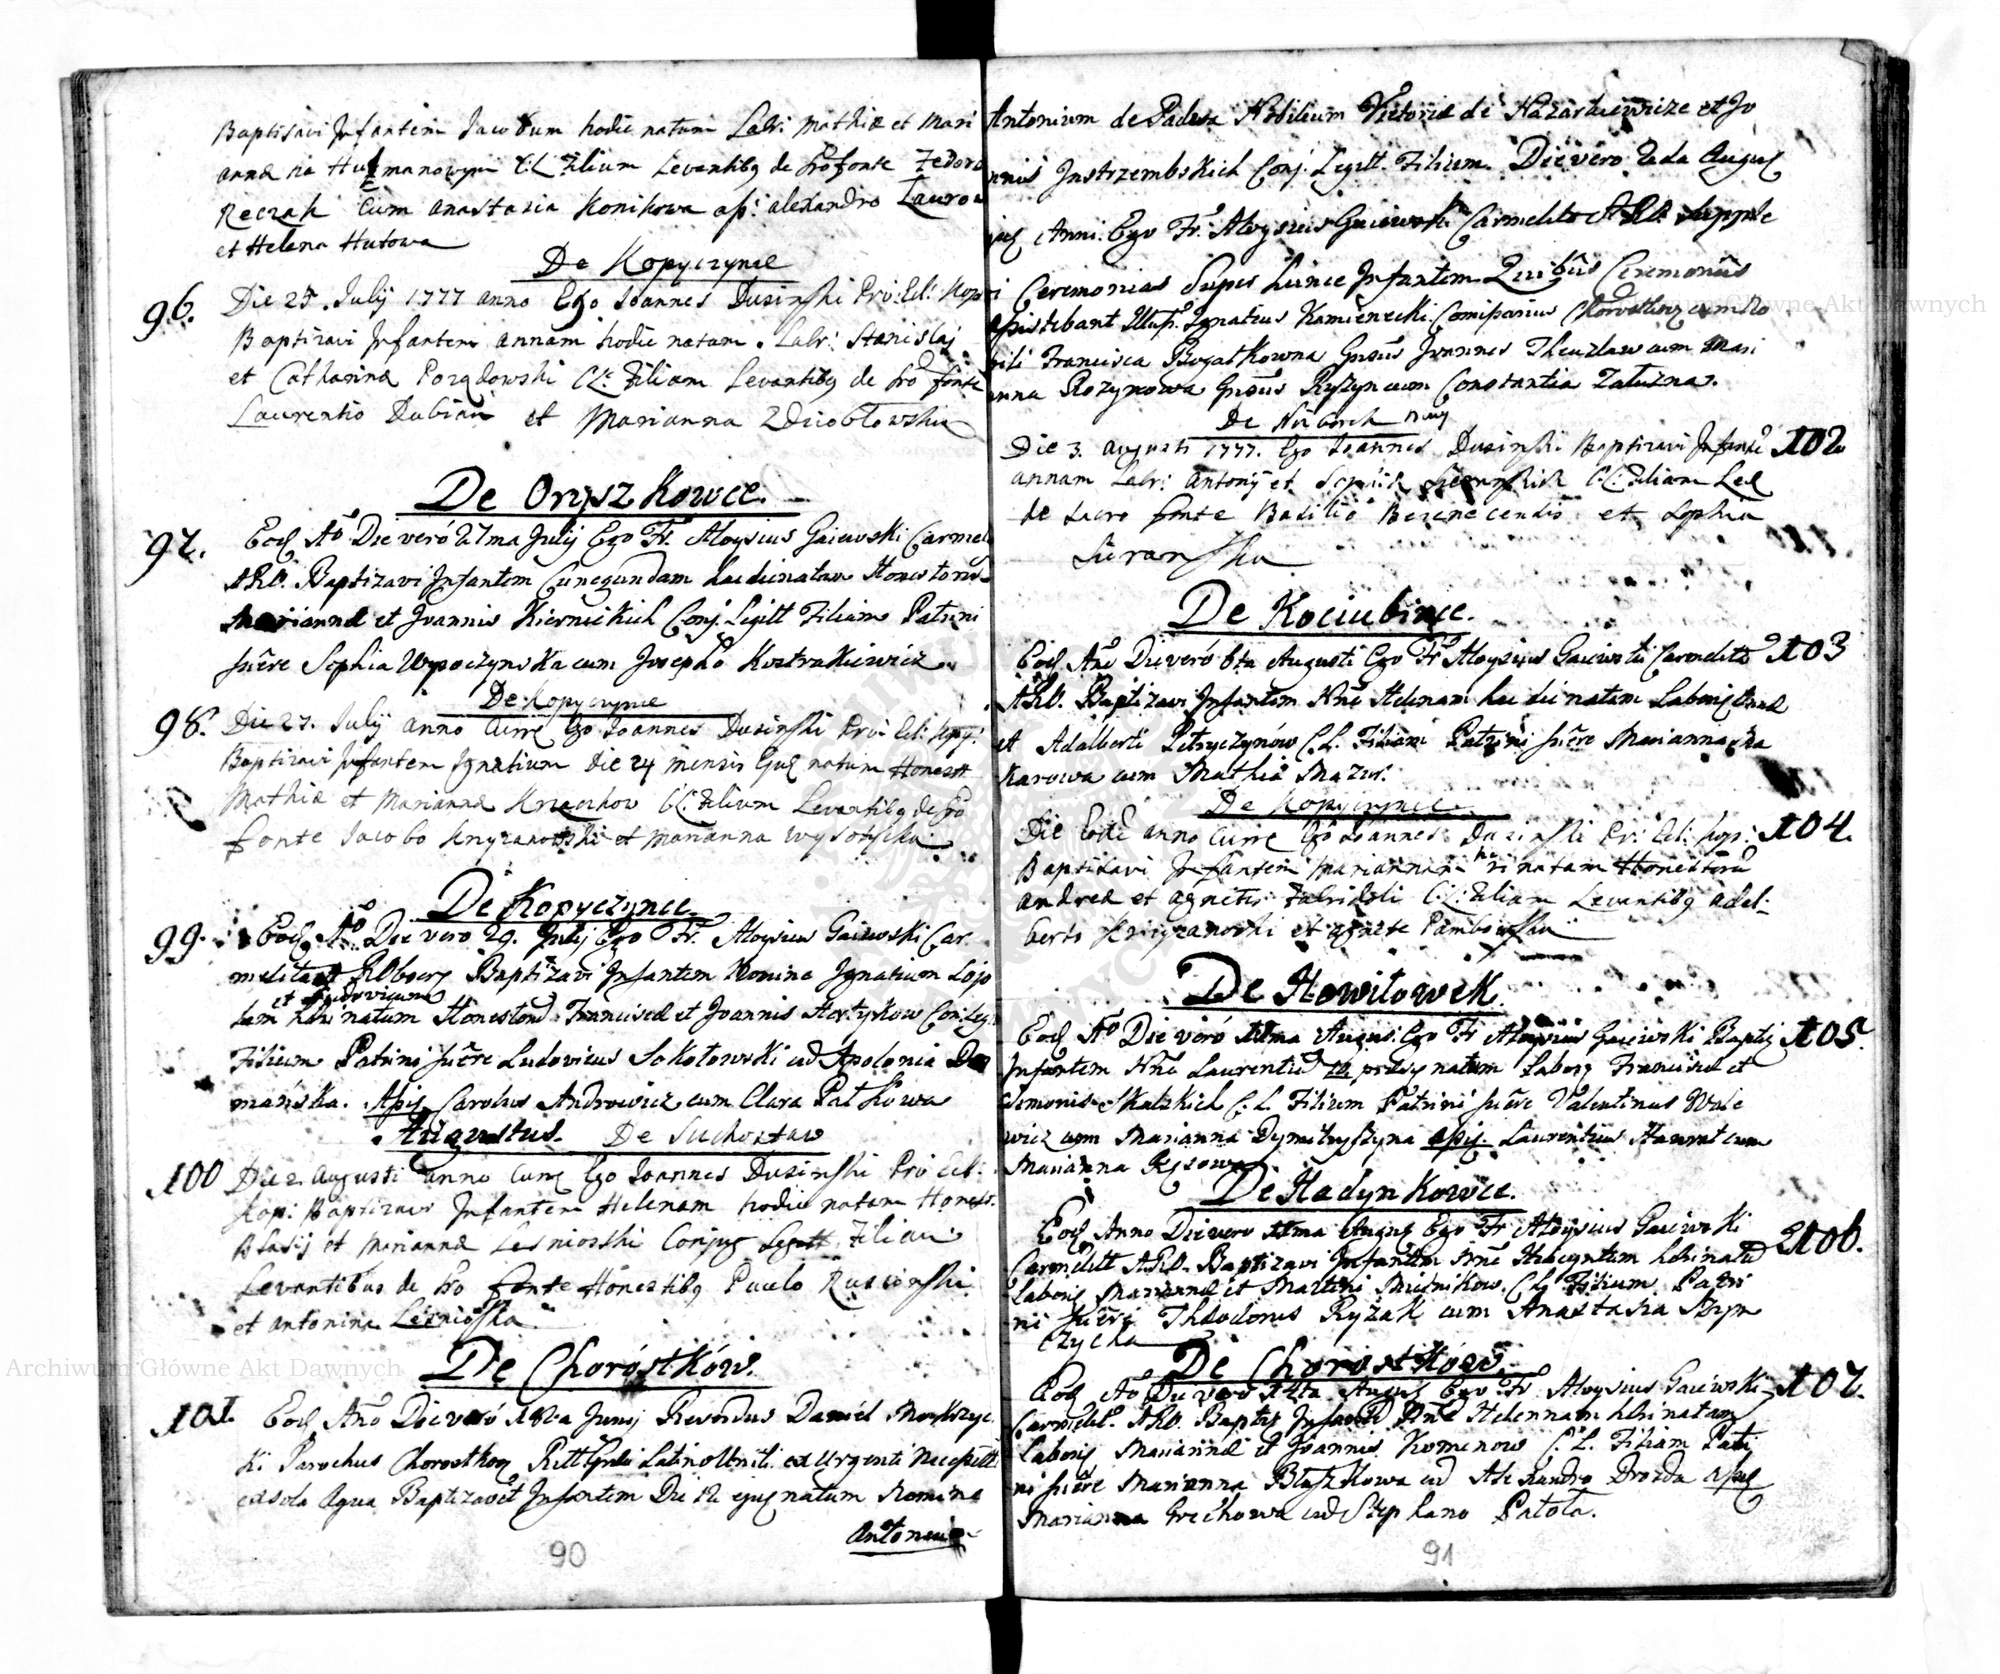 Baptisavi Infantem Jacobum hodie natum Labr: Mathiæ et Mari
annæ na Humanowym C:L Filium Levantibq de Sro fonte Fedoro
Reczah Cum Anastasia Konikowa ass: alexandro Laurow
et Helena Hutowa
De Kopyczynce
96. Die 25. Julij 1777 anno Ego Joannes Dusinski Pro: Ecl: Kop
Baptizavi Infantem annam hodie natam. Labr: Stanislaj
et Catharinæ Porządowski CL: Filiam Levantibq de Sro fonte
Laurentio Dubian et Marianna Zdziobłowska
De Oryszkowce.
97. Eodq Aō Die veró 27ma Julij Ego Fr. Aloysius Gaiewski Carmel
ARO. Baptizavi Infantem Cunegundam hac die natam Honestorū
Mariannæ et Joannis Kiernickich Conj. Legitt Filiam Patrini
fuēre Sophia Wypoczynska cum Josepho Kostrakiewicz.
De Kopyczynce
98. Die 27. Julij anno Curre Ego Joannes Dusinski Pro: Ecl: Kopy:
Baptizavi Infantem Ignatium Die 24 mensis Ejusq natum Honestt
Mathiæ et Mariannæ Krzaczkow CL Filium Levantibq de Sro
fonte Jacobo Knyzanowski et Marianna Wysotycka
De Kopyczynce.
99. Eodq Aō Die vero 29. Julij Ego Fr. Aloysius Gaiewski Car.
melita ARObserq Baptizavi Infantem Nomine Ignatium Lojo
et Ludovicum
lam heri natum Honestorū Franciscæ et Joannis Hortykow Con: Leg:
Filium Patrini fuēre Ludovicus Sokołowski cū Apolonia Do
mańska. Assis Carolus Androwicz cum Clara Patkowa
Augustus. De Suchostaw
100 Die 2. Augusti anno Curre Ego Joannes Dusinski Pro Ecl:
Kop: Baptizavi Infantem Helenam hodie natam Honest:
Blasij et Mariannæ Lesniosski Conjug Legitt Filiam
Levantibus de Sro fonte Honestibq Paulo Rusinski
et Antonina Leśniosska
De Choróstków.
101. Eodq Año Die veró 12a Junij Revērdus Daniel Mokrzyc
ki Parochus Chorostkoq Ritt Greko Latino Uniti. ex Urgenti Necessitt
ex sola Aqua Baptizavit Infantem Die 12 ejusq natum Nomine
Antonium
90
Antonium de Padua Nobilium Victoriæ de Nazarkiewicze et Jo
nnis Jastrzembskich Conj. Legitt. Filium. Die vero 2ada Augusq
jusq Anni. Ego Fr. Aloysius Gaiewski Carmelita ARO. Supple
i Ceremonias Super hunce Infantem Quibūs Ceremoniis
Assistebant Illus. Ignatius Kamienecki Comissarius Chorostkow cum No
bili Francisca Bogatkowna Gnosus Joannes Theuzław cum Mari
anna Rozynowa Gnosus Ryszyn cum Constantia Załuzna.
De Niżborck nowy
Die 3. augusti 1777. Ego Joannes Dusinski Baptizavi Infantē 102
annam Labr: Antonij et Sophiæ C:L: Filiam Led
de Sacro fonte Basilio et Sophia
Suranska
De Kociubince.
Eodq Año Die veró 6ta Augusti Ego Fr Aloysius Gaiewski Carmelita 103
ARO. Baptizavi Infantem Nñe Helenam hac die natam Laborq Annæ
et Adalberti Petryczynów C.L. Filiam Patrini fuēre Marianna
Karowa cum Mathia Mazur.
De Kopyczynce
Die Eodē anno Curre Ego Joannes Dusinski Pr: Ecl: Kop: 104.
Baptisavi Infantem Mariannam heri natam Honestorū
Andreæ et Agnetis C:L: Filiam Levantibq Adal:
berto Krzyzanoski et Agnete
De Howiłowek
Eodq Aō Die veró 11ma Augus. Ego Fr Aloysius Gaiewski Baptiz 105.
Infantem Nñe Laurentiū natum Laborq Franciscæ et
Simonis Skalzkich C. L. Filium Patrini fuēre Valentinus Wale
wicz cum Marianna Dymitryszyna Assis. Laurentius cum
Marianna
De Hadynkowce.
Eodq Anno Die vero 11ma Augusq Ego Fr Aloysius Gaiewski 106.
Carmelitt ARO. Baptizavi Infantem Nñe Hiacyntum heri natū
Laborq Mariannæ et Martini Mielnikow. CL Filium. Patri
ni fuēre Theodorus Ryżak cum Anastasia Szym
czycha
De Chorostków.
Eodq Aō Die vero 12ta Augusq Ego Fr Aloysius Gaiewski 107.
Carmelt. ARO. Baptiz Infantē Nñe Helennam heri natam
Laborq Mariannæ et Joannis Komenow C. L. Filiam Patri
ni fuēre Marianna Błaszkowa cū Alexandro Drozda Assq
Marianna Greckowa cū Stephano Patoła.
91
Archiwum Główne Akt Dawnych
Archiwum Główne Akt Dawnych